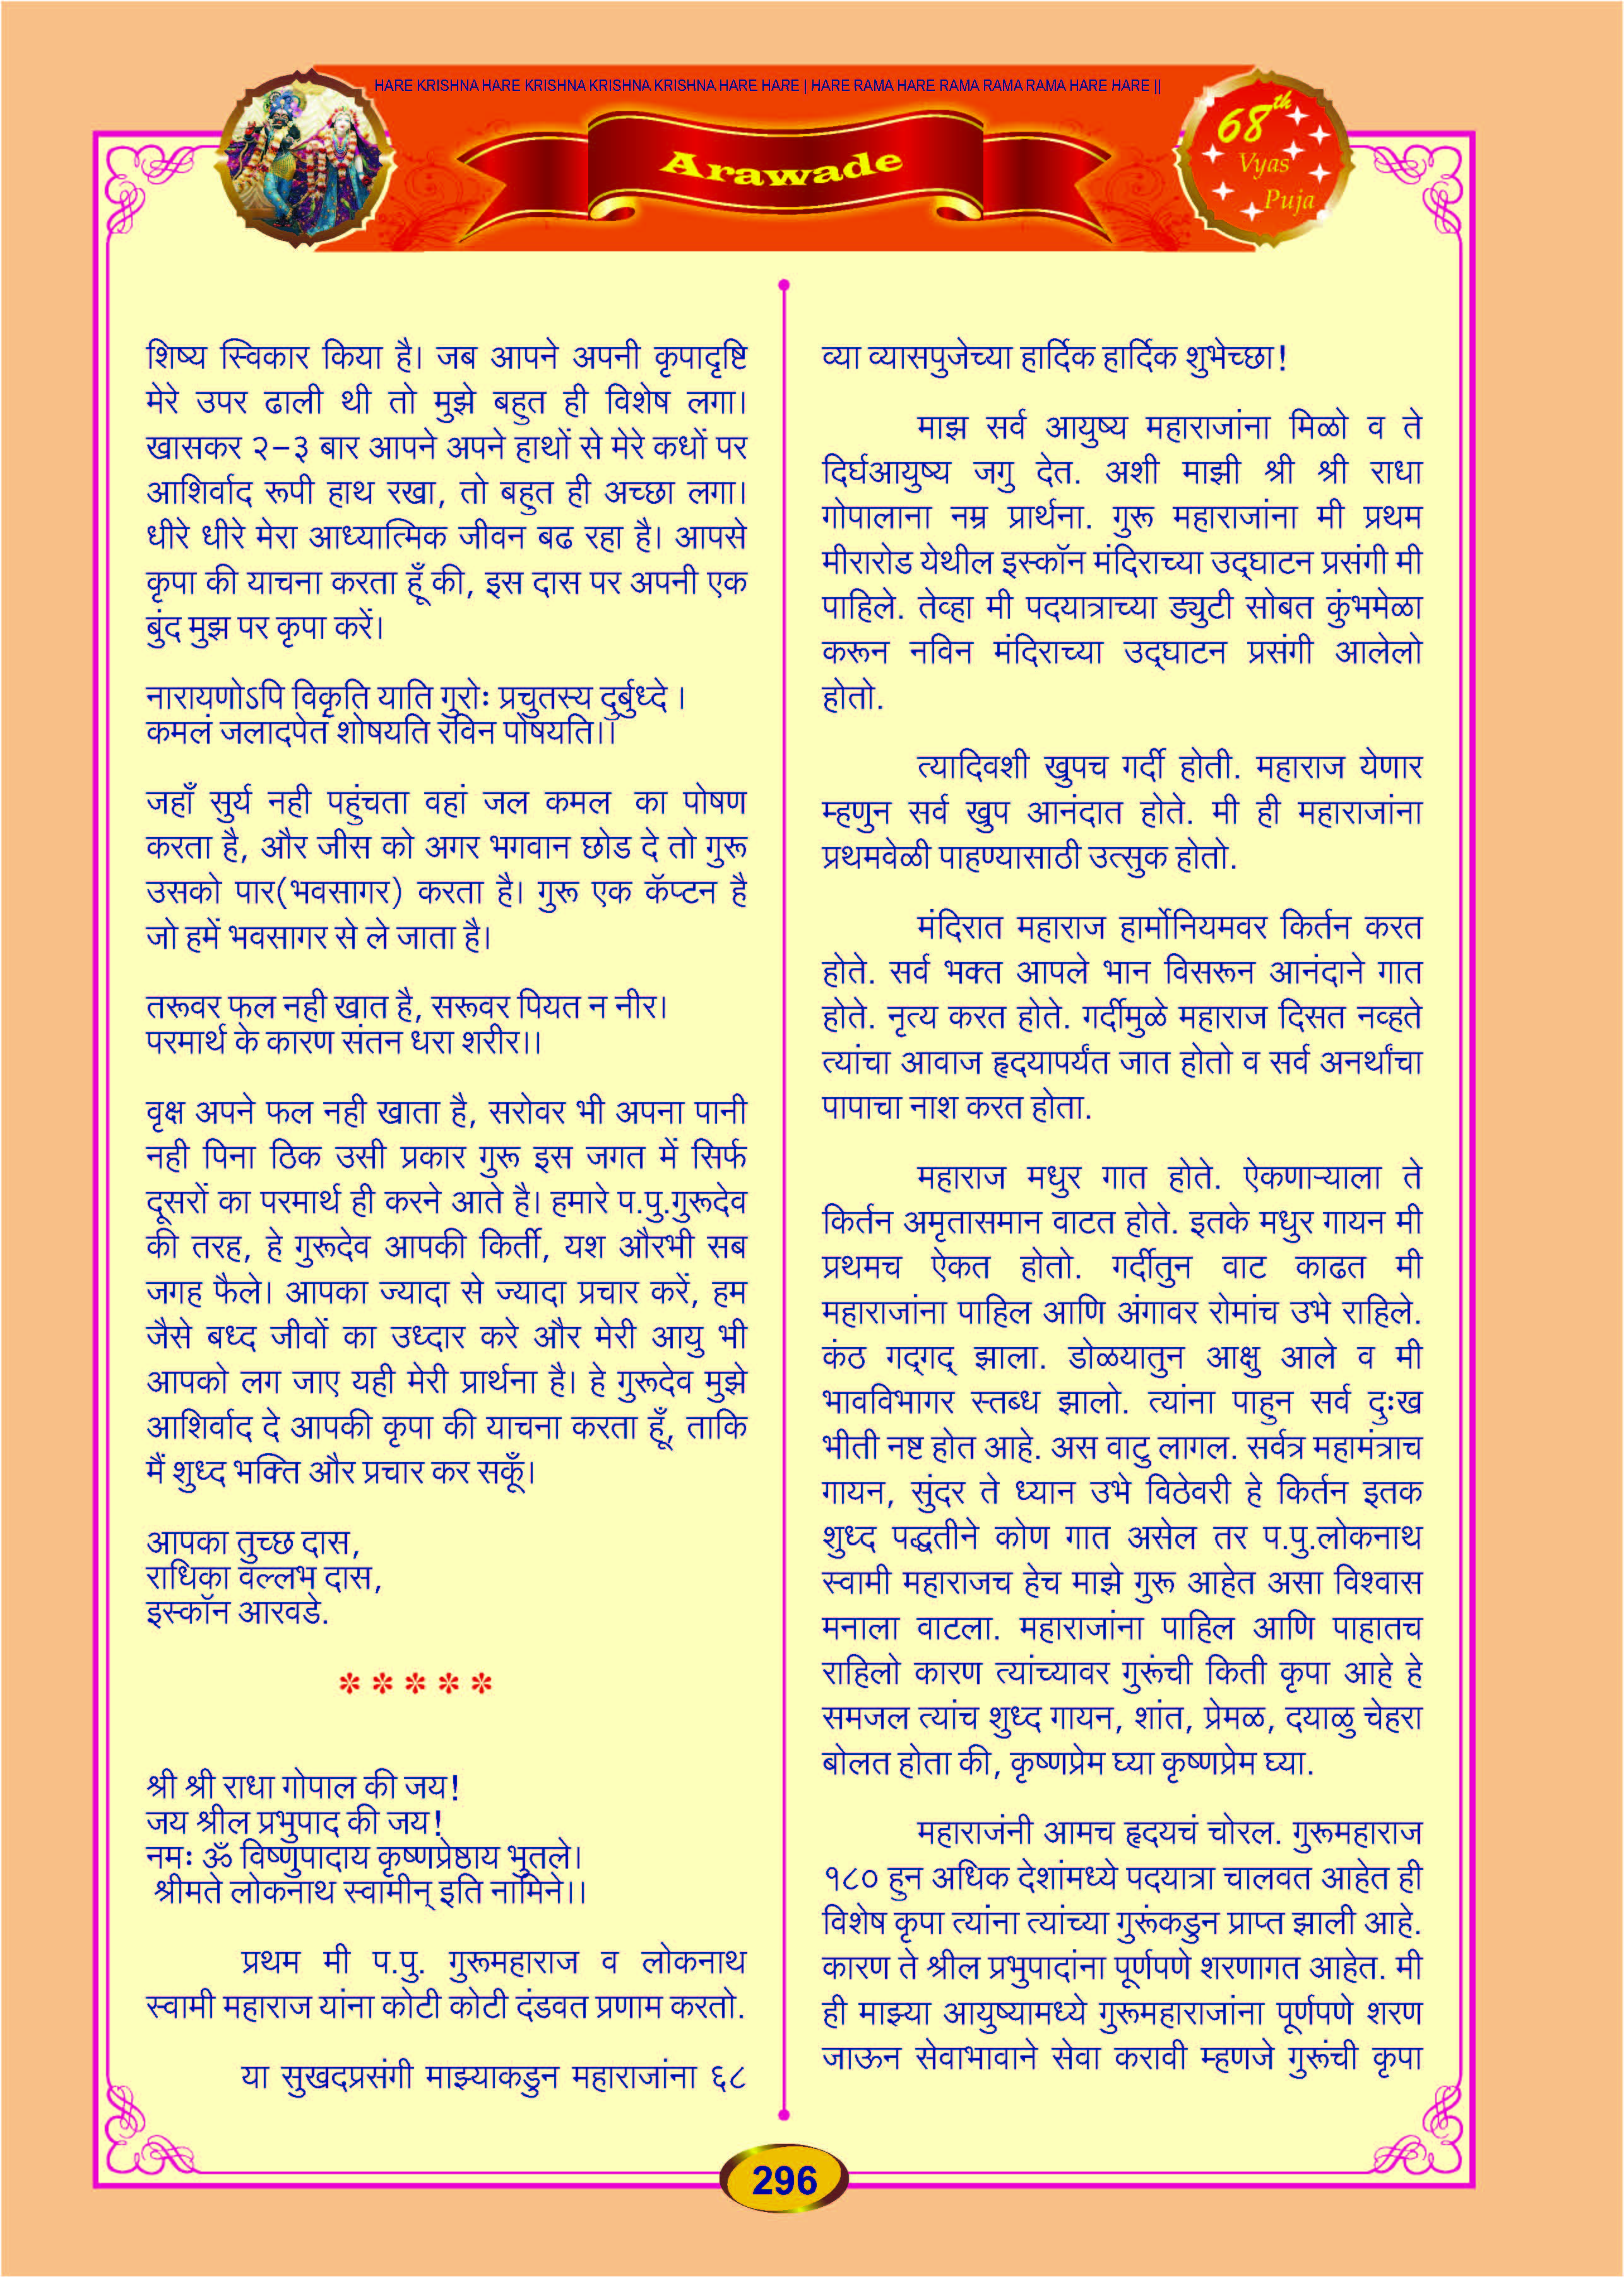 HARE KRISHNA HARE KRISHNA KRISHNA KRISHNA HARE HARE | HARE RAMA HARE RAMA RAMA RAMA HARE HARE ||
Arawade
68th
Vyas
Puja
शिष्य स्विकार किया है। जब आपने अपनी कृपादृष्टि
मेरे उपर ढाली थी तो मुझे बहुत ही विशेष लगा।
खासकर २-३ बार आपने अपने हाथों से मेरे कधों पर
आशिर्वाद रूपी हाथ रखा, तो बहुत ही अच्छा लगा।
धीरे धीरे मेरा आध्यात्मिक जीवन बढ रहा है। आपसे
कृपा की याचना करता हूँ की, इस दास पर अपनी एक
बुंद मुझ पर कृपा करें।
नारायणोऽपि विकृति याति गुरोः प्रचुतस्य दुर्बुध्दे ।
कमलं जलादपेतं शोषयति रविन पोषयति।।
जहाँ सुर्य नही पहुंचता वहां जल कमल का पोषण
करता है, और जीस को अगर भगवान छोड दे तो गुरू
उसको पार(भवसागर) करता है। गुरू एक कॅप्टन है
जो हमें भवसागर से ले जाता है।
तरूवर फल नही खात है, सरूवर पियत न नीर।
परमार्थ के कारण संतन धरा शरीर।।
वृक्ष अपने फल नही खाता है, सरोवर भी अपना पानी
नही पिना ठिक उसी प्रकार गुरू इस जगत में सिर्फ
दूसरों का परमार्थ ही करने आते है। हमारे प.पु.गुरूदेव
की तरह, हे गुरूदेव आपकी किर्ती, यश औरभी सब
जगह फैले। आपका ज्यादा से ज्यादा प्रचार करें, हम
जैसे बध्द जीवों का उध्दार करे और मेरी आयु भी
आपको लग जाए यही मेरी प्रार्थना है। हे गुरूदेव मुझे
आशिर्वाद दे आपकी कृपा की याचना करता हूँ, ताकि
मैं शुध्द भक्ति और प्रचार कर सकूँ।
आपका तुच्छ दास,
राधिका वल्लभ दास,
इस्कॉन आरवडे.
* * * * *
श्री श्री राधा गोपाल की जय!
जय श्रील प्रभुपाद की जय!
नमः ॐ विष्णुपादाय कृष्णप्रेष्ठाय भुतले।
श्रीमते लोकनाथ स्वामीन् इति नामिने।।
प्रथम मी प.पु. गुरूमहाराज व लोकनाथ
स्वामी महाराज यांना कोटी कोटी दंडवत प्रणाम करतो.
या सुखदप्रसंगी माझ्याकडुन महाराजांना ६८
व्या व्यासपुजेच्या हार्दिक हार्दिक शुभेच्छा!
माझ सर्व आयुष्य महाराजांना मिळो व ते
दिर्घआयुष्य जगु देत. अशी माझी श्री श्री राधा
गोपालाना नम्र प्रार्थना. गुरू महाराजांना मी प्रथम
मीरारोड येथील इस्कॉन मंदिराच्या उद्घाटन प्रसंगी मी
पाहिले. तेव्हा मी पदयात्राच्या ड्युटी सोबत कुंभमेळा
करून नविन मंदिराच्या उद्घाटन प्रसंगी आलेलो
होतो.
त्यादिवशी खुपच गर्दी होती. महाराज येणार
म्हणुन सर्व खुप आनंदात होते. मी ही महाराजांना
प्रथमवेळी पाहण्यासाठी उत्सुक होतो.
मंदिरात महाराज हार्मोनियमवर किर्तन करत
होते. सर्व भक्त आपले भान विसरून आनंदाने गात
होते. नृत्य करत होते. गर्दीमुळे महाराज दिसत नव्हते
त्यांचा आवाज हृदयापर्यंत जात होतो व सर्व अनर्थांचा
पापाचा नाश करत होता.
महाराज मधुर गात होते. ऐकणाऱ्याला ते
किर्तन अमृतासमान वाटत होते. इतके मधुर गायन मी
प्रथमच ऐकत होतो. गर्दीतुन वाट काढत मी
महाराजांना पाहिल आणि अंगावर रोमांच उभे राहिले.
कंठ गद्गद् झाला. डोळयातुन आक्षु आले व मी
भावविभागर स्तब्ध झालो. त्यांना पाहुन सर्व दुःख
भीती नष्ट होत आहे. अस वाटु लागल. सर्वत्र महामंत्राच
गायन, सुंदर ते ध्यान उभे विठेवरी हे किर्तन इतक
शुध्द पद्धतीने कोण गात असेल तर प.पु.लोकनाथ
स्वामी महाराजच हेच माझे गुरू आहेत असा विश्वास
मनाला वाटला. महाराजांना पाहिल आणि पाहातच
राहिलो कारण त्यांच्यावर गुरूंची किती कृपा आहे हे
समजल त्यांच शुध्द गायन, शांत, प्रेमळ, दयाळु चेहरा
बोलत होता की, कृष्णप्रेम घ्या कृष्णप्रेम घ्या.
महाराजंनी आमच हृदयचं चोरल. गुरूमहाराज
१८० हुन अधिक देशांमध्ये पदयात्रा चालवत आहेत ही
विशेष कृपा त्यांना त्यांच्या गुरूंकडुन प्राप्त झाली आहे.
कारण ते श्रील प्रभुपादांना पूर्णपणे शरणागत आहेत. मी
ही माझ्या आयुष्यामध्ये गुरूमहाराजांना पूर्णपणे शरण
जाऊन सेवाभावाने सेवा करावी म्हणजे गुरूंची कृपा
296